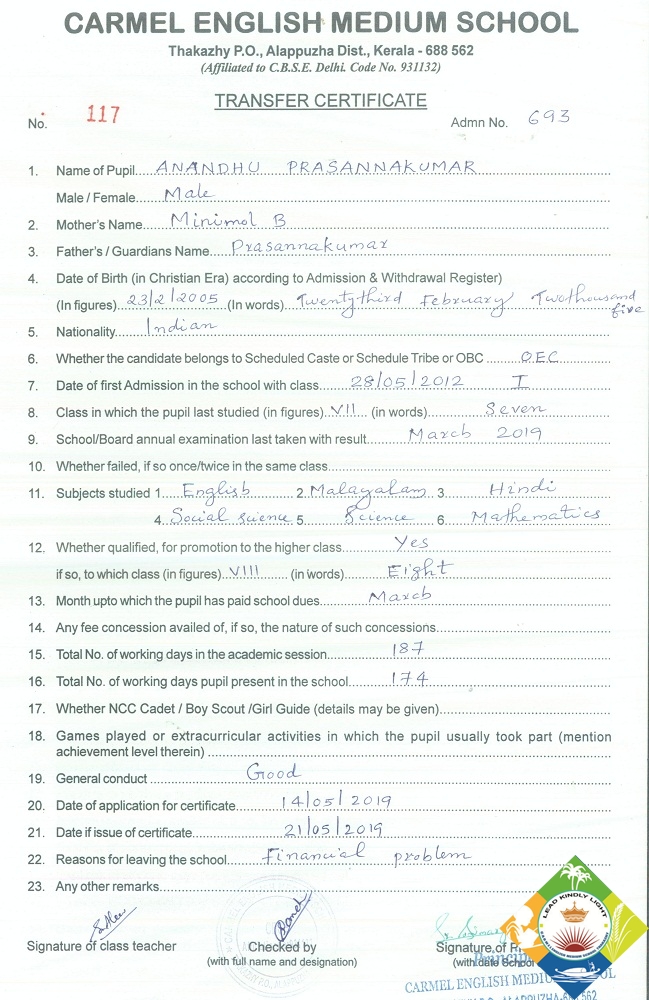 CARMEL ENGLISH MEDIUM SCHOOL
Thakazhy P.O., Alappuzha Dist., Kerala - 688 562
(Affiliated to C.B.S.E. Delhi. Code No. 931132)
TRANSFER CERTIFICATE
No. 117 Admn No. 693
1. Name of Pupil...ANANDHU PRASANNAKUMAR
Male / Female...Male
2. Mother's Name...Minimol B
3. Father's / Guardians Name...Prasannakumar
4. Date of Birth (in Christian Era) according to Admission & Withdrawal Register)
(In figures)...23/2/2005...(In words)...Twentythird February Twothousand five
5. Nationality...Indian
6. Whether the candidate belongs to Scheduled Caste or Schedule Tribe or OBC...OEC
7. Date of first Admission in the school with class...28/05/2012 I
8. Class in which the pupil last studied (in figures) VII (in words)...Seven
9. School/Board annual examination last taken with result...March 2019
10. Whether failed, if so once/twice in the same class...
11. Subjects studied 1...English 2...Malayalam 3...Hindi
4...Social science 5...Science 6...Mathematics
12. Whether qualified, for promotion to the higher class...Yes
if so, to which class (in figures)...VIII (in words)...Eight
13. Month upto which the pupil has paid school dues...March
14. Any fee concession availed of, if so, the nature of such concessions...
15. Total No. of working days in the academic session...187
16. Total No. of working days pupil present in the school...174
17. Whether NCC Cadet / Boy Scout /Girl Guide (details may be given)...
18. Games played or extracurricular activities in which the pupil usually took part (mention
achievement level therein)...
19. General conduct...Good
20. Date of application for certificate...14/05/2019
21. Date if issue of certificate...21/05/2019
22. Reasons for leaving the school...Financial problem
23. Any other remarks...
Signature of class teacher Checked by Signature of
(with full name and designation) (with date School
CARMEL ENGLISH MEDIU
LEAD KINDLY LIGHT